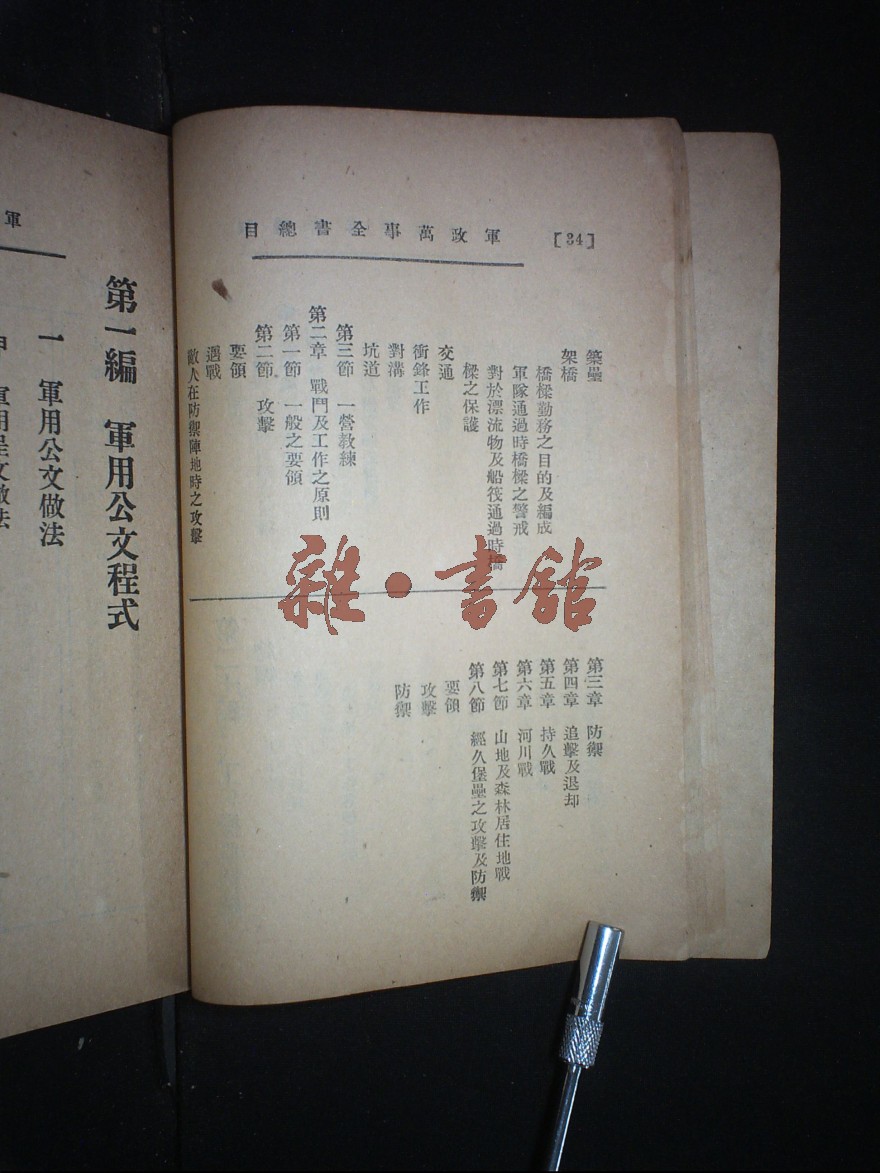 [34]
軍政萬事全書總目
築壘
架橋
橋樑勤務之目的及編成
軍隊通過時橋樑之警戒
對於漂流物及船筏通過時橋
樑之保護
交通
衝鋒工作
對溝
坑道
第三節 一營教練
第二章 戰鬥及工作之原則
第一節 一般之要領
第二節 攻擊
要領
遇戰
敵人在防禦陣地時之攻擊
第三章 防禦
第四章 追擊及退却
第五章 持久戰
第六章 河川戰
第七節 山地及森林居住地戰
第八節 經久堡壘之攻擊及防禦
要領
攻擊
防禦
軍
第一編 軍用公文程式
一 軍用公文做法
軍用呈文做法
雜·書館